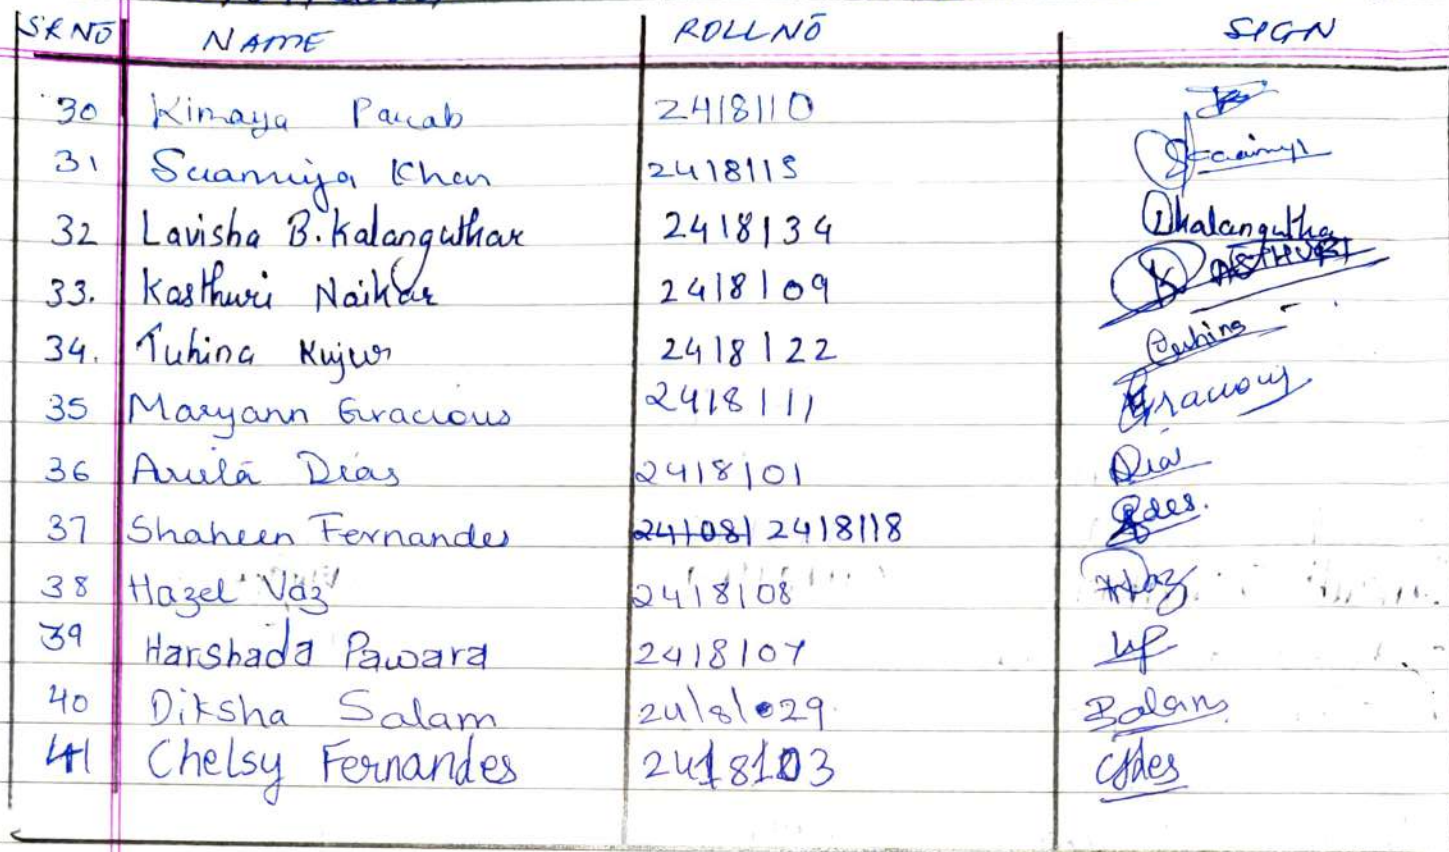 SR NO NAME ROLL NO SIGN
30 Kimaya Parab 2418110
31 Suamiya Khan 2418115
32 Lavisha B. Kalanguthar 2418134 Lkalangutha
33. Kasthuri Naikar 2418109 KASTHURI
34. Tuhina Kujur 2418122 Tuhina
35 Maryann Gracious 2418111 Gracious
36 Dias 2418101 Dias
37 Shaheen Fernandes 241081 2418118 Sdes.
38 Hazel Vaz 2418108 HVaz
39 Harshada Pawara 2418107 HP
40 Diksha Salam 2418029 Salam
41 Chelsy Fernandes 2418103 Cfdes